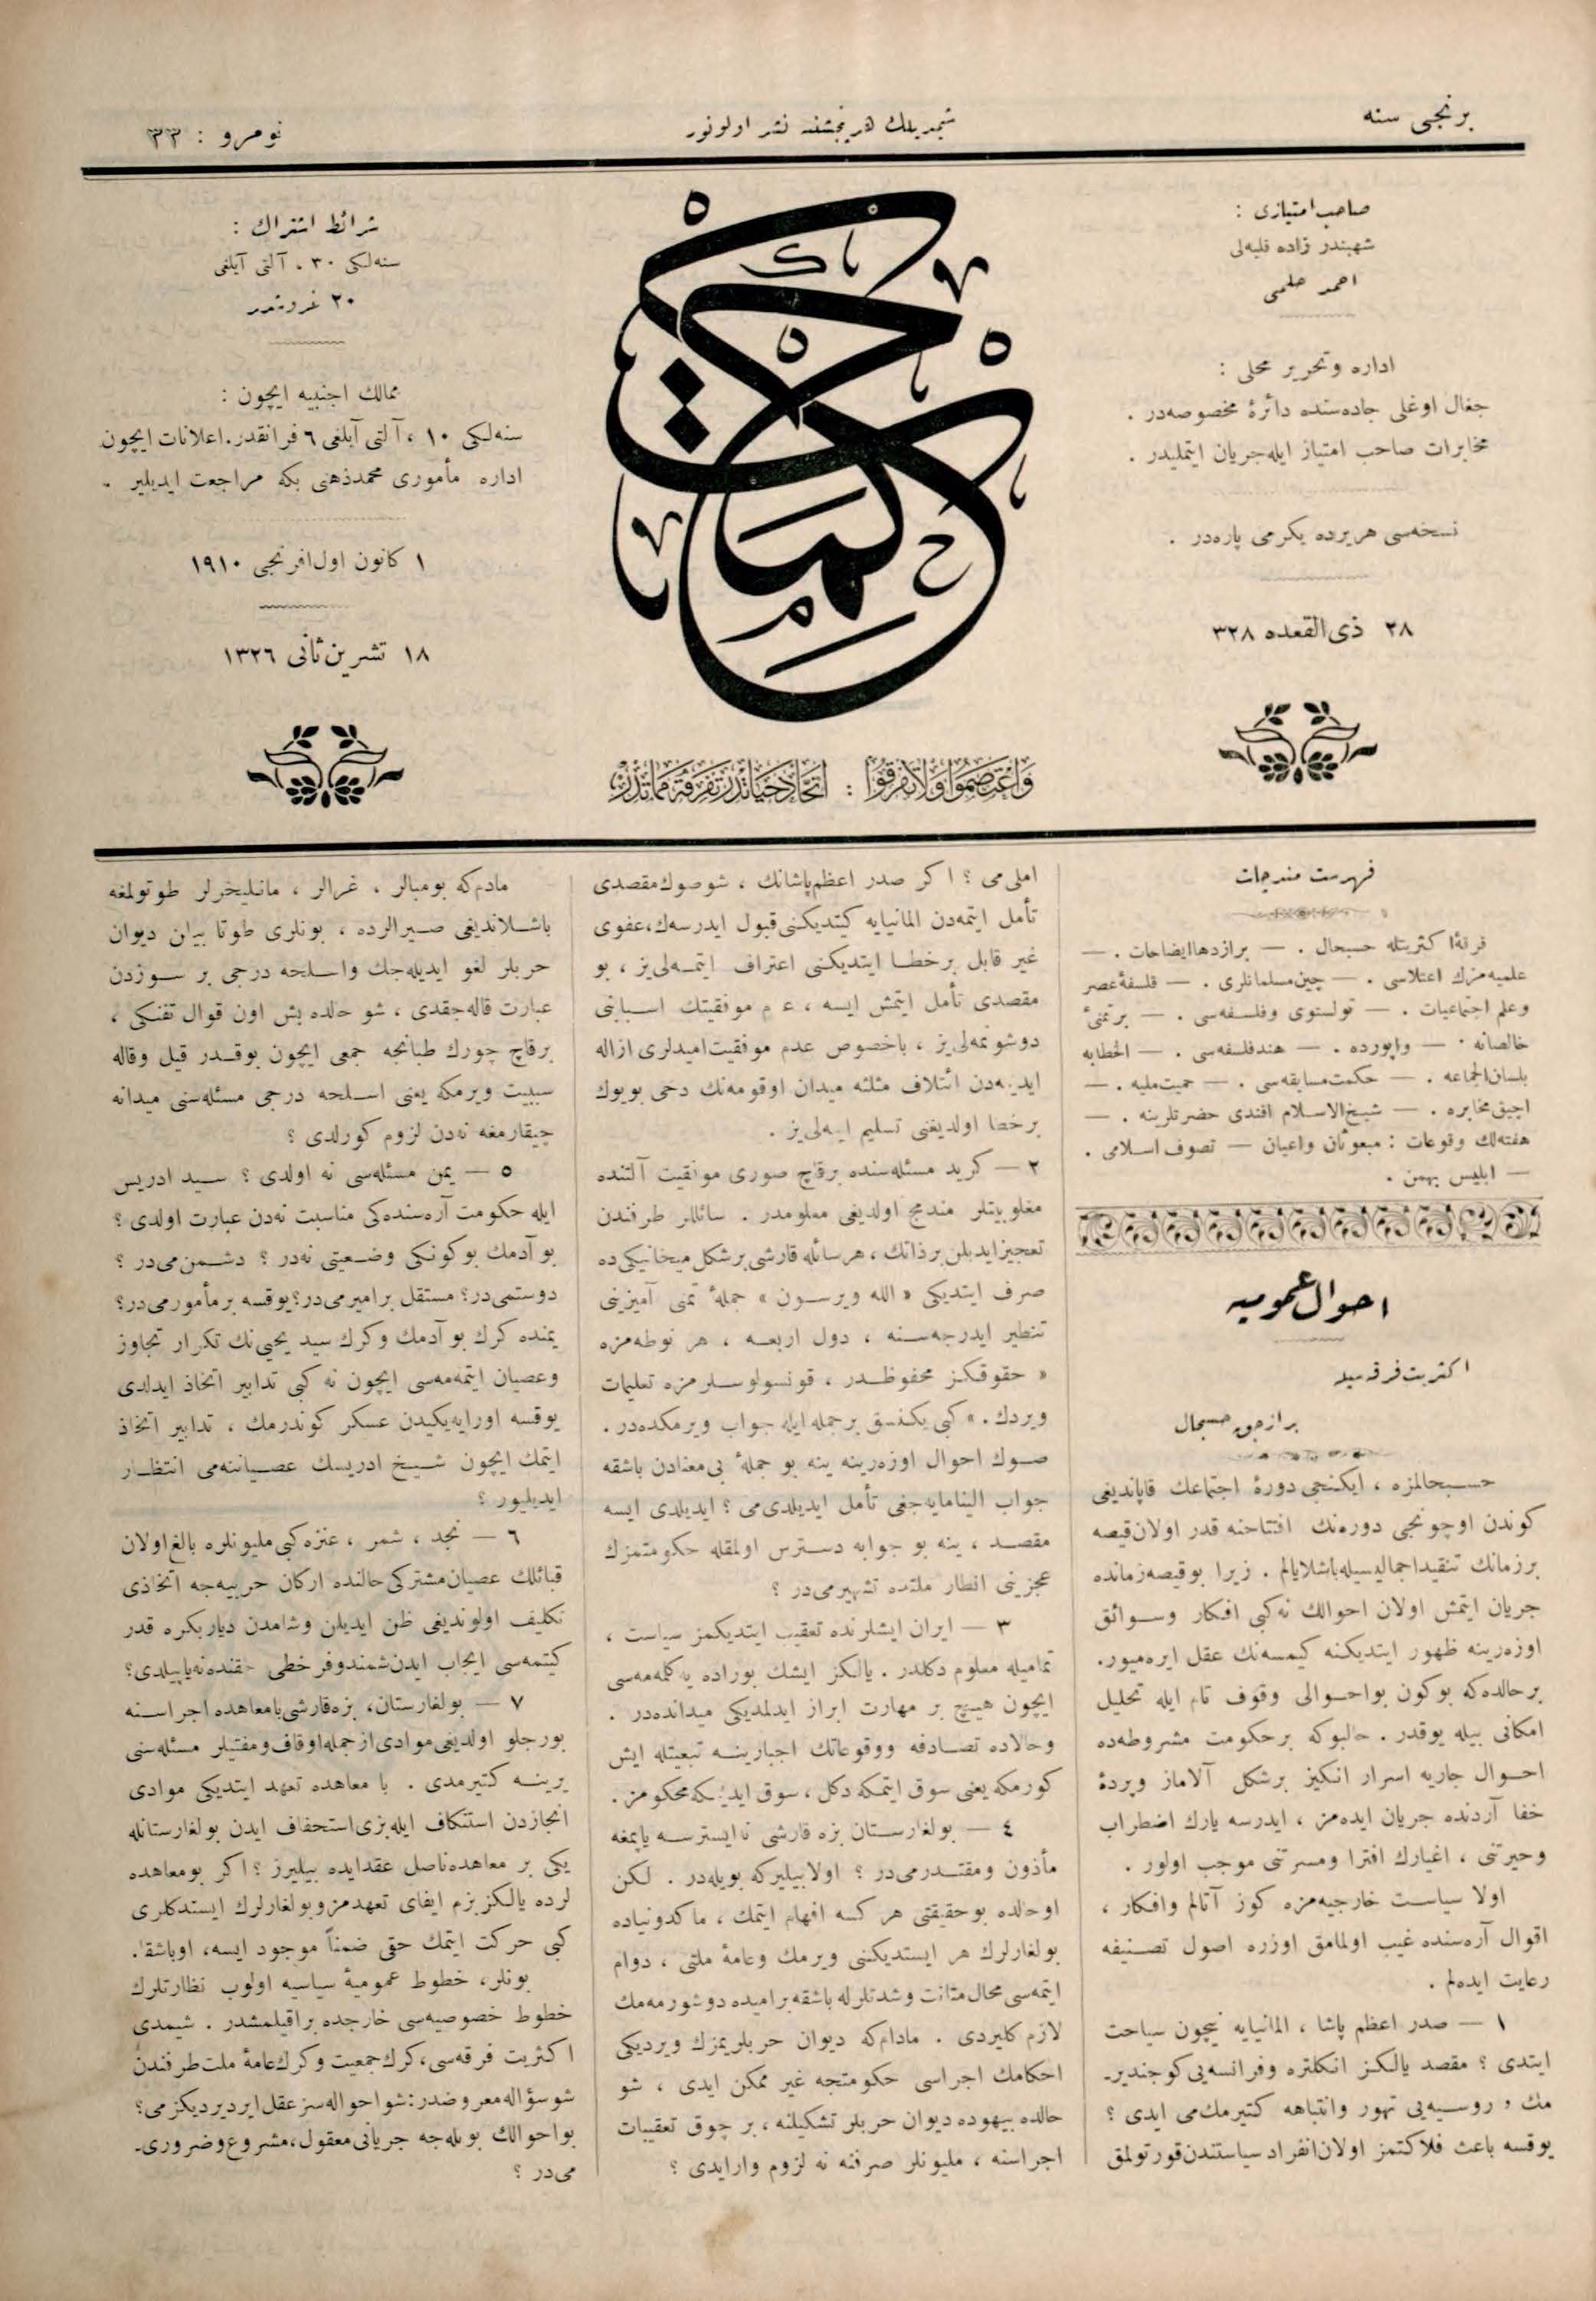 برنجی سنه
شیمدیلك هر پنجشنبه نشر اولونور
نومرو : ٣٣
صاحب امتیازی :
شهبندر زاده فلبه‌لی
احمد حلمی
اداره وتحریر محلی :
جغال اوغلی جاده‌سنده دائرهٔ مخصوصه‌در .
مخابرات صاحب امتیاز ایله جریان ایتملیدر .
نسخه‌سی هریرده یكرمی پاره‌در .
٢٨ ذی القعده ٣٢٨
حكمت
وَاعْتَصِمُوا وَلَا تَفَرَّقُوا : اتحاد حیاتدر تفرقه مماتدر
شرائط اشتراك :
سنه‌لكی ٣٠ ، آلتی آیلغی
٢٠ غروشدر
ممالك اجنبیه ایچون :
سنه‌لكی ١٠ ، آلتی آیلغی ٦ فرانقدر. اعلانات ایچون
اداره مأموری محمدذهنی بكه مراجعت ایدیلیر .
١ كانون اول افرنجی ١٩١٠
١٨ تشرین ثانی ١٣٢٦
فهرست مندرجات
فرقهٔ اكثریتله حسبحال . — برازدها ایضاحات . —
علمیه‌مزك اعتلاسی . — چین مسلمانلری . — فلسفهٔ عصر
وعلم اجتماعیات . — تولستوی وفلسفه‌سی . — برتمنیٔ
خالصانه . — واپورده . — هندفلسفه‌سی . — الخطابه
بلسان الجماعه . — حكمت مسابقه‌سی . — حمیت ملیه . —
اچیق مخابره . — شیخ‌الاسلام افندی حضرتلرینه . —
هفته‌لك وقوعات : مبعوثان واعیان — تصوف اسلامی .
— ابلیس بهمن .
احوال عمومیه
اكثریت فرقه سیله
برازجق حسبحال
حسبحالمزه ، ایكنجی دورهٔ اجتماعك قاپاندیغی
كوندن اوچونجی دوره‌نك افتتاحنه قدر اولان قیصه
برزمانك تنقید اجمالیسیله باشلایالم . زیرا بوقیصه زمانده
جریان ایتمش اولان احوالك نه‌كبی افكار وسوائق
اوزه‌رینه ظهور ایتدیكنه كیمسه‌نك عقل ایره‌میور.
برحالده‌كه بوكون بواحوالی وقوف تام ایله تحلیل
امكانی بیله یوقدر . حالبوكه برحكومت مشروطه‌ده
احوال جاریه اسرار انكیز برشكل آلاماز وپردهٔ
خفا آردنده جریان ایده‌مز ، ایدرسه یارك اضطراب
وحیرتنی ، اغیارك افترا ومسرتنی موجب اولور .
اولا سیاست خارجیه‌مزه كوز آتالم وافكار ،
اقوال آره‌سنده غیب اولمامق اوزره اصول تصنیفه
رعایت ایده‌لم .
١ — صدر اعظم پاشا ، المانیایه نیچون سیاحت
ایتدی ؟ مقصد یالكز انكلتره وفرانسه‌یی كوجندیر-
مك ، روسیه‌یی تهور وانتباهه كتیرمك‌می ایدی ؟
یوقسه باعث فلاكتمز اولان انفراد سیاستندن قورتولمق
املی‌می ؟ اكر صدر اعظم پاشانك ، شوصوك مقصدی
تأمل ایتمه‌دن المانیایه كیتدیكنی قبول ایدرسه‌ك، عفوی
غیر قابل برخطا ایتدیكنی اعتراف ایتمه‌لی‌یز ، بو
مقصدی تأمل ایتمش ایسه ، عدم موفقیتك اسبابنی
دوشونمه‌لی‌یز ، باخصوص عدم موفقیت امیدلری ازاله
ایدیه‌دن ائتلاف مثلثه میدان اوقومه‌نك دخی بویوك
برخطا اولدیغنی تسلیم ایمه‌لی‌یز .
٢ — كرید مسئله‌سنده برقاچ صوری موفقیت آلتنده
مغلوبیتلر مندمج اولدیغی معلومدر . سائللر طرفندن
تعجیز ایدیلن برذاتك ، هرسائله قارشی برشكل میخانیكی‌ده
صرف ایتدیكی « الله ویرسون » جملهٔ تمنی آمیزینی
تنظیر ایدرجه‌سنه ، دول اربعه ، هر نوطه‌مزه
« حقوقكز محفوظدر ، قونسولوسلرمزه تعلیمات
ویردك . » كبی یكنسق برجمله ایله جواب ویرمكده‌در .
صوك احوال اوزه‌رینه ینه بو جملهٔ بی‌معنادن باشقه
جواب الینامایه‌جغی تأمل ایدیلدی‌می ؟ ایدیلدی ایسه
مقصد ، ینه بو جوابه دسترس اولمقله حكومتمزك
عجزینی انظار ملتده تشهیرمی‌در ؟
٣ — ایران ایشلرنده تعقیب ایتدیكمز سیاست ،
تمامیله معلوم دكلدر . یالكز ایشك بوراده یه كلمه‌مه‌سی
ایچون هیچ بر مهارت ابراز ایدلمدیكی میدانده‌در .
وحالاده تصادفه ووقوعاتك اجبارینه تبعیتله ایش
كورمكه یعنی سوق ایتمكه دكل ، سوق ایدیلمكه محكومز .
٤ — بولغارستان بزه قارشی نه ایسترسه یاپمغه
مأذون ومقتدرمی‌در ؟ اولابیلیركه بویله‌در . لكن
اوحالده بوحقیقتی هر كسه افهام ایتمك ، ماكدونیاده
بولغارلرك هر ایستدیكنی ویرمك وعامهٔ ملتی ، دوام
ایتمه‌سی محال متانت وشدتلرله باشقه برامیده دوشورمه‌مك
لازم كلیردی . مادامكه دیوان حربلریمزك ویردیكی
احكامك اجراسی حكومتجه غیر ممكن ایدی ، شو
حالده بیهوده دیوان حربلر تشكیلنه ، بر چوق تعقیبات
اجراسنه ، ملیونلر صرفنه نه لزوم وارایدی ؟
مادم‌كه بومبالر ، غرالر ، مانلیخرلر طوتولمغه
باشلاندیغی صیرالرده ، بونلری طوتا بیلن دیوان
حربلر لغو ایدیله‌جك واسلحه درجی بر سوزدن
عبارت قاله‌جقدی ، شو حالده بش اون قوال تفنكی ،
برقاچ چورك طبانجه جمعی ایچون بوقدر قیل وقاله
سببیت ویرمكه یعنی اسلحه درجی مسئله‌سنی میدانه
چیقارمغه نه‌دن لزوم كورلدی ؟
٥ — یمن مسئله‌سی نه اولدی ؟ سید ادریس
ایله حكومت آره‌سنده‌كی مناسبت نه‌دن عبارت اولدی ؟
بو آدمك بوكونكی وضعیتی نه‌در ؟ دشمن‌می‌در ؟
دوستمی‌در؟ مستقل برامیرمی‌در؟ یوقسه برمأمورمی‌در؟
یمنده كرك بو آدمك وكرك سید یحیی‌نك تكرار تجاوز
وعصیان ایتمه‌مه‌سی ایچون نه كبی تدابیر اتخاذ ایدلدی
یوقسه اورایه یكیدن عسكر كوندرمك ، تدابیر اتخاذ
ایتمك ایچون شیخ ادریسك عصیاننه‌می انتظار
ایدیلیور ؟
٦ — نجد ، شمر ، عنزه كبی ملیونلره بالغ اولان
قبائلك عصیان مشتركی حالنده اركان حربیه‌جه اتخاذی
تكلیف اولوندیغی ظن ایدیلن وشامدن دیاربكره قدر
كیتمه‌سی ایجاب ایدن شمندوفر خطی حقنده نه یاپیلدی؟
٧ — بولغارستان، بزه قارشی بامعاهده اجراسنه
بورجلو اولدیغی موادی ازجمله اوقاف ومفتیلر مسئله‌سنی
یرینه كتیرمدی . با معاهده تعهد ایتدیكی موادی
انجازدن استنكاف ایله بزی استحفاف ایدن بولغارستانله
یكی بر معاهده ناصل عقدایده بیلیرز ؟ اكر بومعاهده
لرده یالكز بزم ایفای تعهدمز وبولغارلرك ایستدكلری
كبی حركت ایتمك حقی ضمناً موجود ایسه، اوباشقه.
بونلر، خطوط عمومیهٔ سیاسیه اولوب نظارتلرك
خطوط خصوصیه‌سی خارجده براقیلمشدر . شیمدی
اكثریت فرقه‌سی، كرك جمعیت وكرك عامهٔ ملت طرفندن
شو سؤاله معروضدر: شو احواله سز عقل ایردیردیكزمی؟
بواحوالك بویله‌جه جریانی معقول، مشروع وضروری-
می‌در ؟